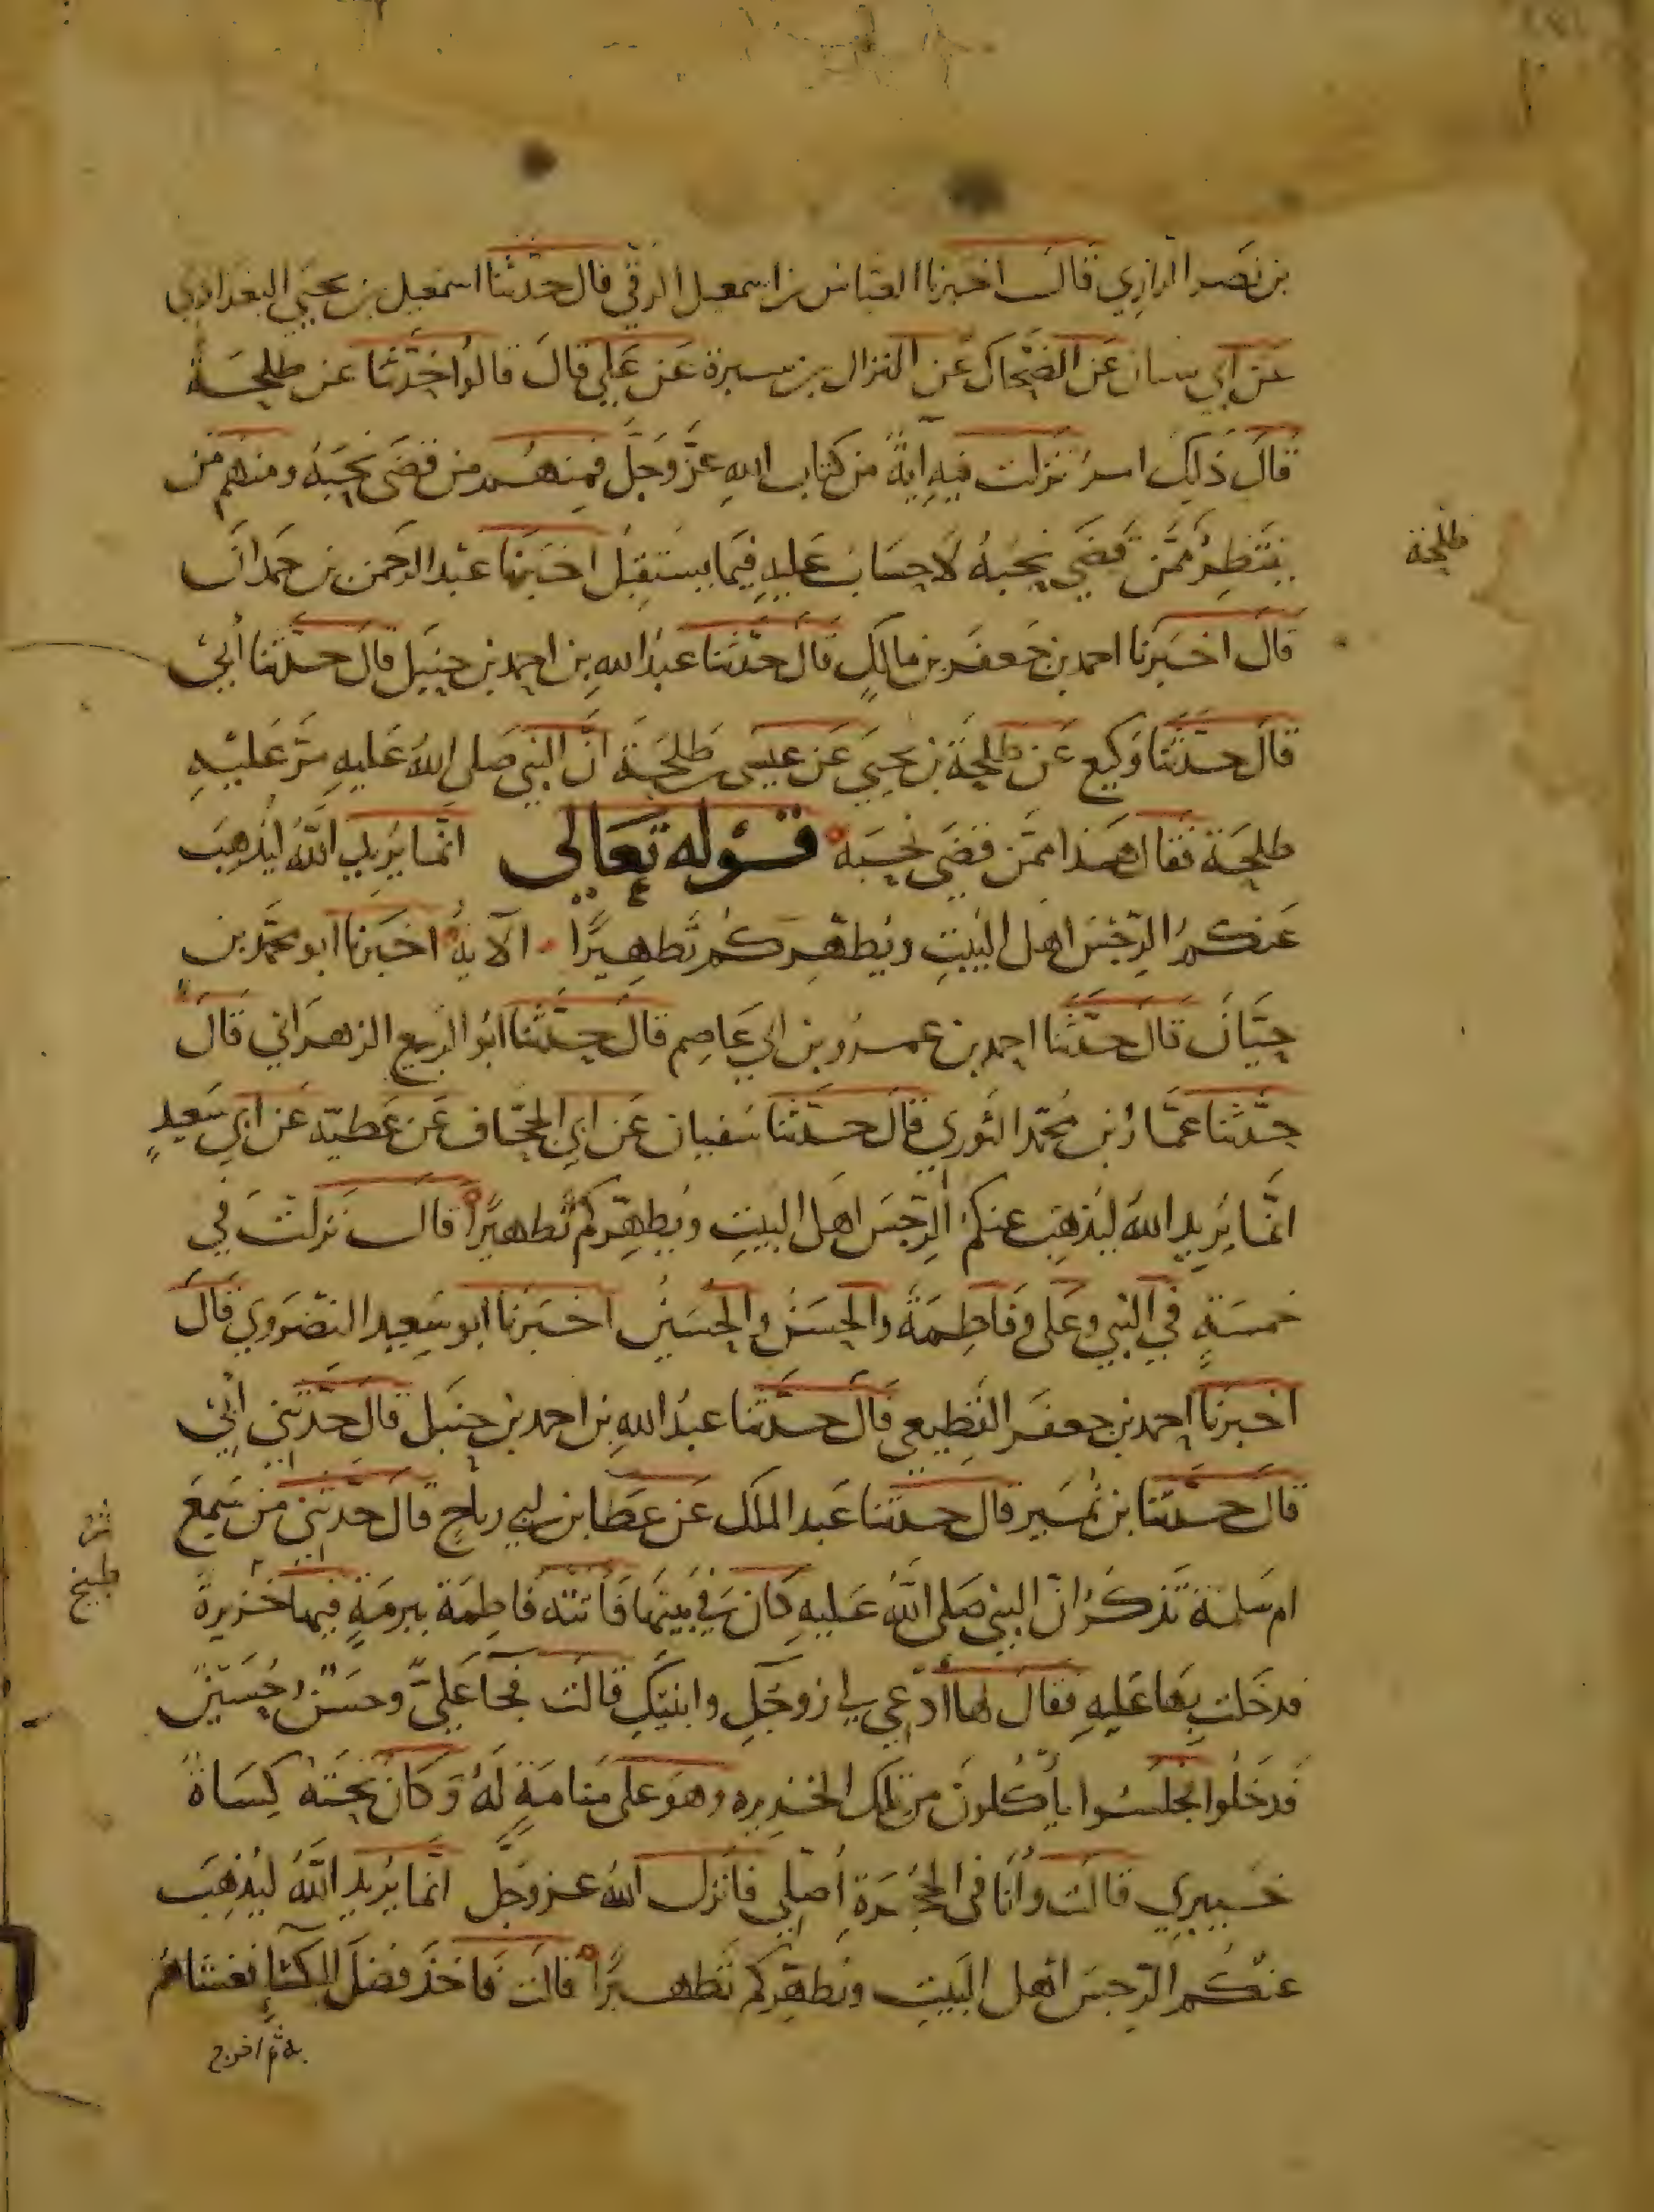 بن نصر الرازي قال اخبرنا العباس بن اسمعيل الرقي قال حدثنا اسمعيل بن يحيي البغدادي
عن ابي سنان عن الضحاك عن النزال بن سبرة عن علي قال قالوا حدثنا عن طلحة
قال ذلك امرؤ نزلت فيه آية من كتاب الله عز وجل فمنهم من قضى نحبه ومنهم من
ينتظر ممن قضي نحبه لا حساب عليه فيما يستقبل اخبرنا عبد الرحمن بن حمدان
طلحة
قال اخبرنا احمد بن جعفر بن مالك قال حدثنا عبد الله بن احمد بن حنبل قال حدثنا أبي
قال حدثنا وكيع عن طلحة بن يحيي عن عيسى بن طلحة ان النبي صلى الله عليه مر عليه
طلحة فقال هذا ممن قضى نحبه قوله تعالى انما يريد الله ليذهب
عنكم الرجس اهل البيت ويطهركم تطهيرا الآية اخبرنا ابو محمد بن
حيان قال حدثنا احمد بن عمرو بن ابي عاصم قال حدثنا ابو الربيع الزهراني قال
حدثنا عمار بن محمد الثوري قال حدثنا سفيان عن ابي الجحاف عن عطية عن ابي سعيد
انما يريد الله ليذهب عنكم الرجس اهل البيت ويطهركم تطهيرا قال نزلت في
خمسة في النبي وعلى وفاطمة والحسن والحسين اخبرنا ابو سعيد النضروي قال
اخبرنا احمد بن جعفر القطيعي قال حدثنا عبد الله بن احمد بن حنبل قال حدثني أبي
قال حدثنا بن نمير قال حدثنا عبد الملك عن عطا بن ابي رباح قال حدثني من سمع
ام سلمة تذكر ان النبي صلى الله عليه كان في بيتها فاتته فاطمة ببرمة فيها خزيرة
طبيخ
فدخلت بها عليه فقال لها ادعي لي زوجك وابنيك قالت فجا علي وحسن وحسين
فدخلوا فجلسوا يأكلون من تلك الخزيره وهو على منامة له وكان تحته كساة
خيبري قالت وأنا في الحجرة أصلي فانزل الله عز وجل انما يريد الله ليذهب
عنكم الرجس اهل البيت ويطهركم تطهيرا قالت فاخذ فضل الكسا فغشاهم
به ثم اخرج